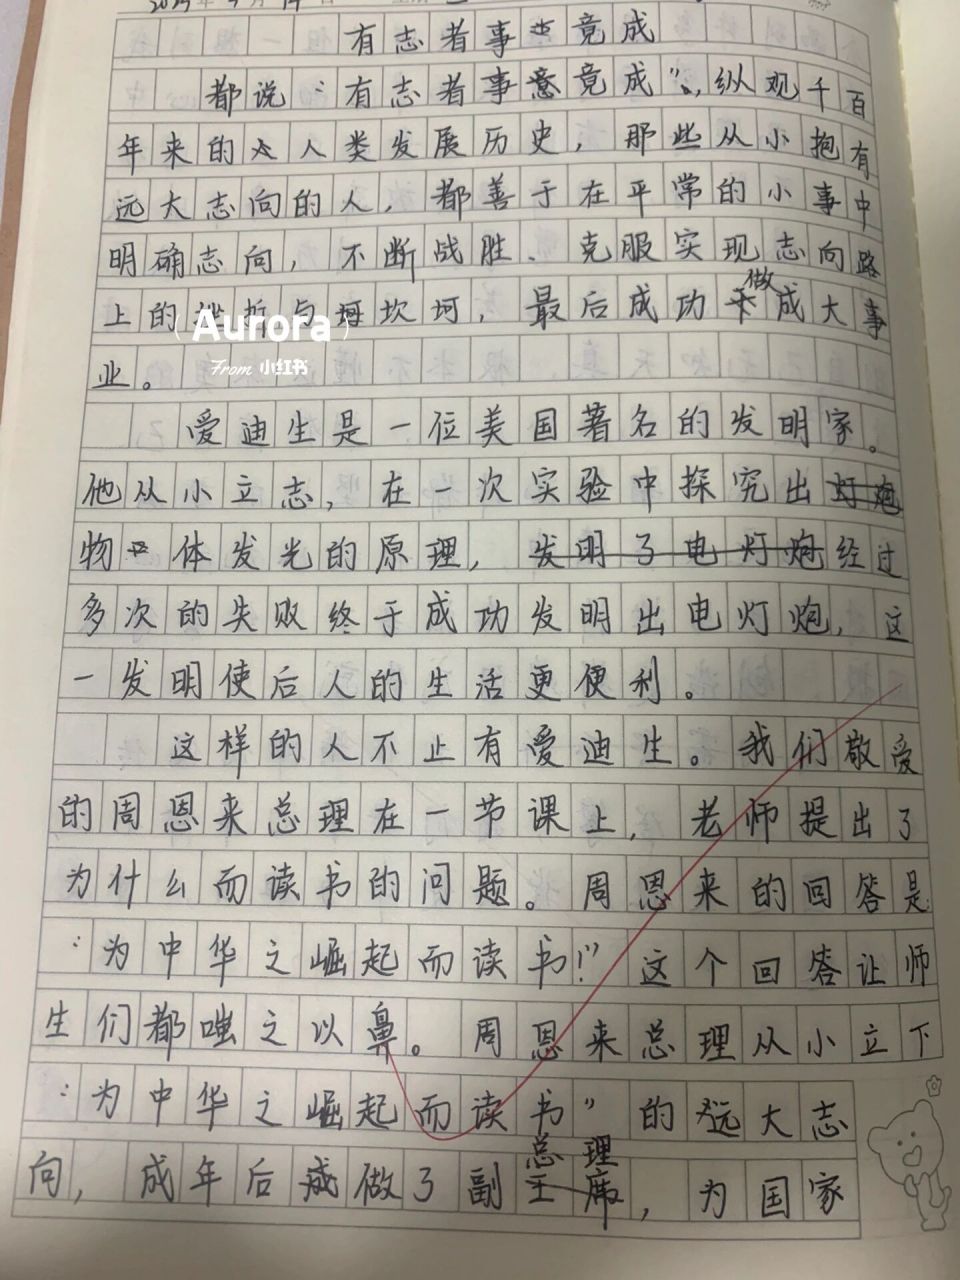 有志者事竟成
都说："有志者事竟成"，纵观千百
年来的人类发展历史，那些从小抱有
远大志向的人，都善于在平常的小事中
明确志向，不断战胜、克服实现志向路
上的挫折与坎坷，最后成功做成大事
业。
爱迪生是一位美国著名的发明家。
他从小立志，在一次实验中探究出
物体发光的原理，发明了电灯炮经过
多次的失败终于成功发明出电灯炮，这
一发明使后人的生活更便利。
这样的人不止有爱迪生。我们敬爱
的周恩来总理在一节课上，老师提出了
为什么而读书的问题。周恩来的回答是
："为中华之崛起而读书！"这个回答让师
生们都嗤之以鼻。周恩来总理从小立下
："为中华之崛起而读书"的远大志
向，成年后做了副总理，为国家
Aurora
From 小红书